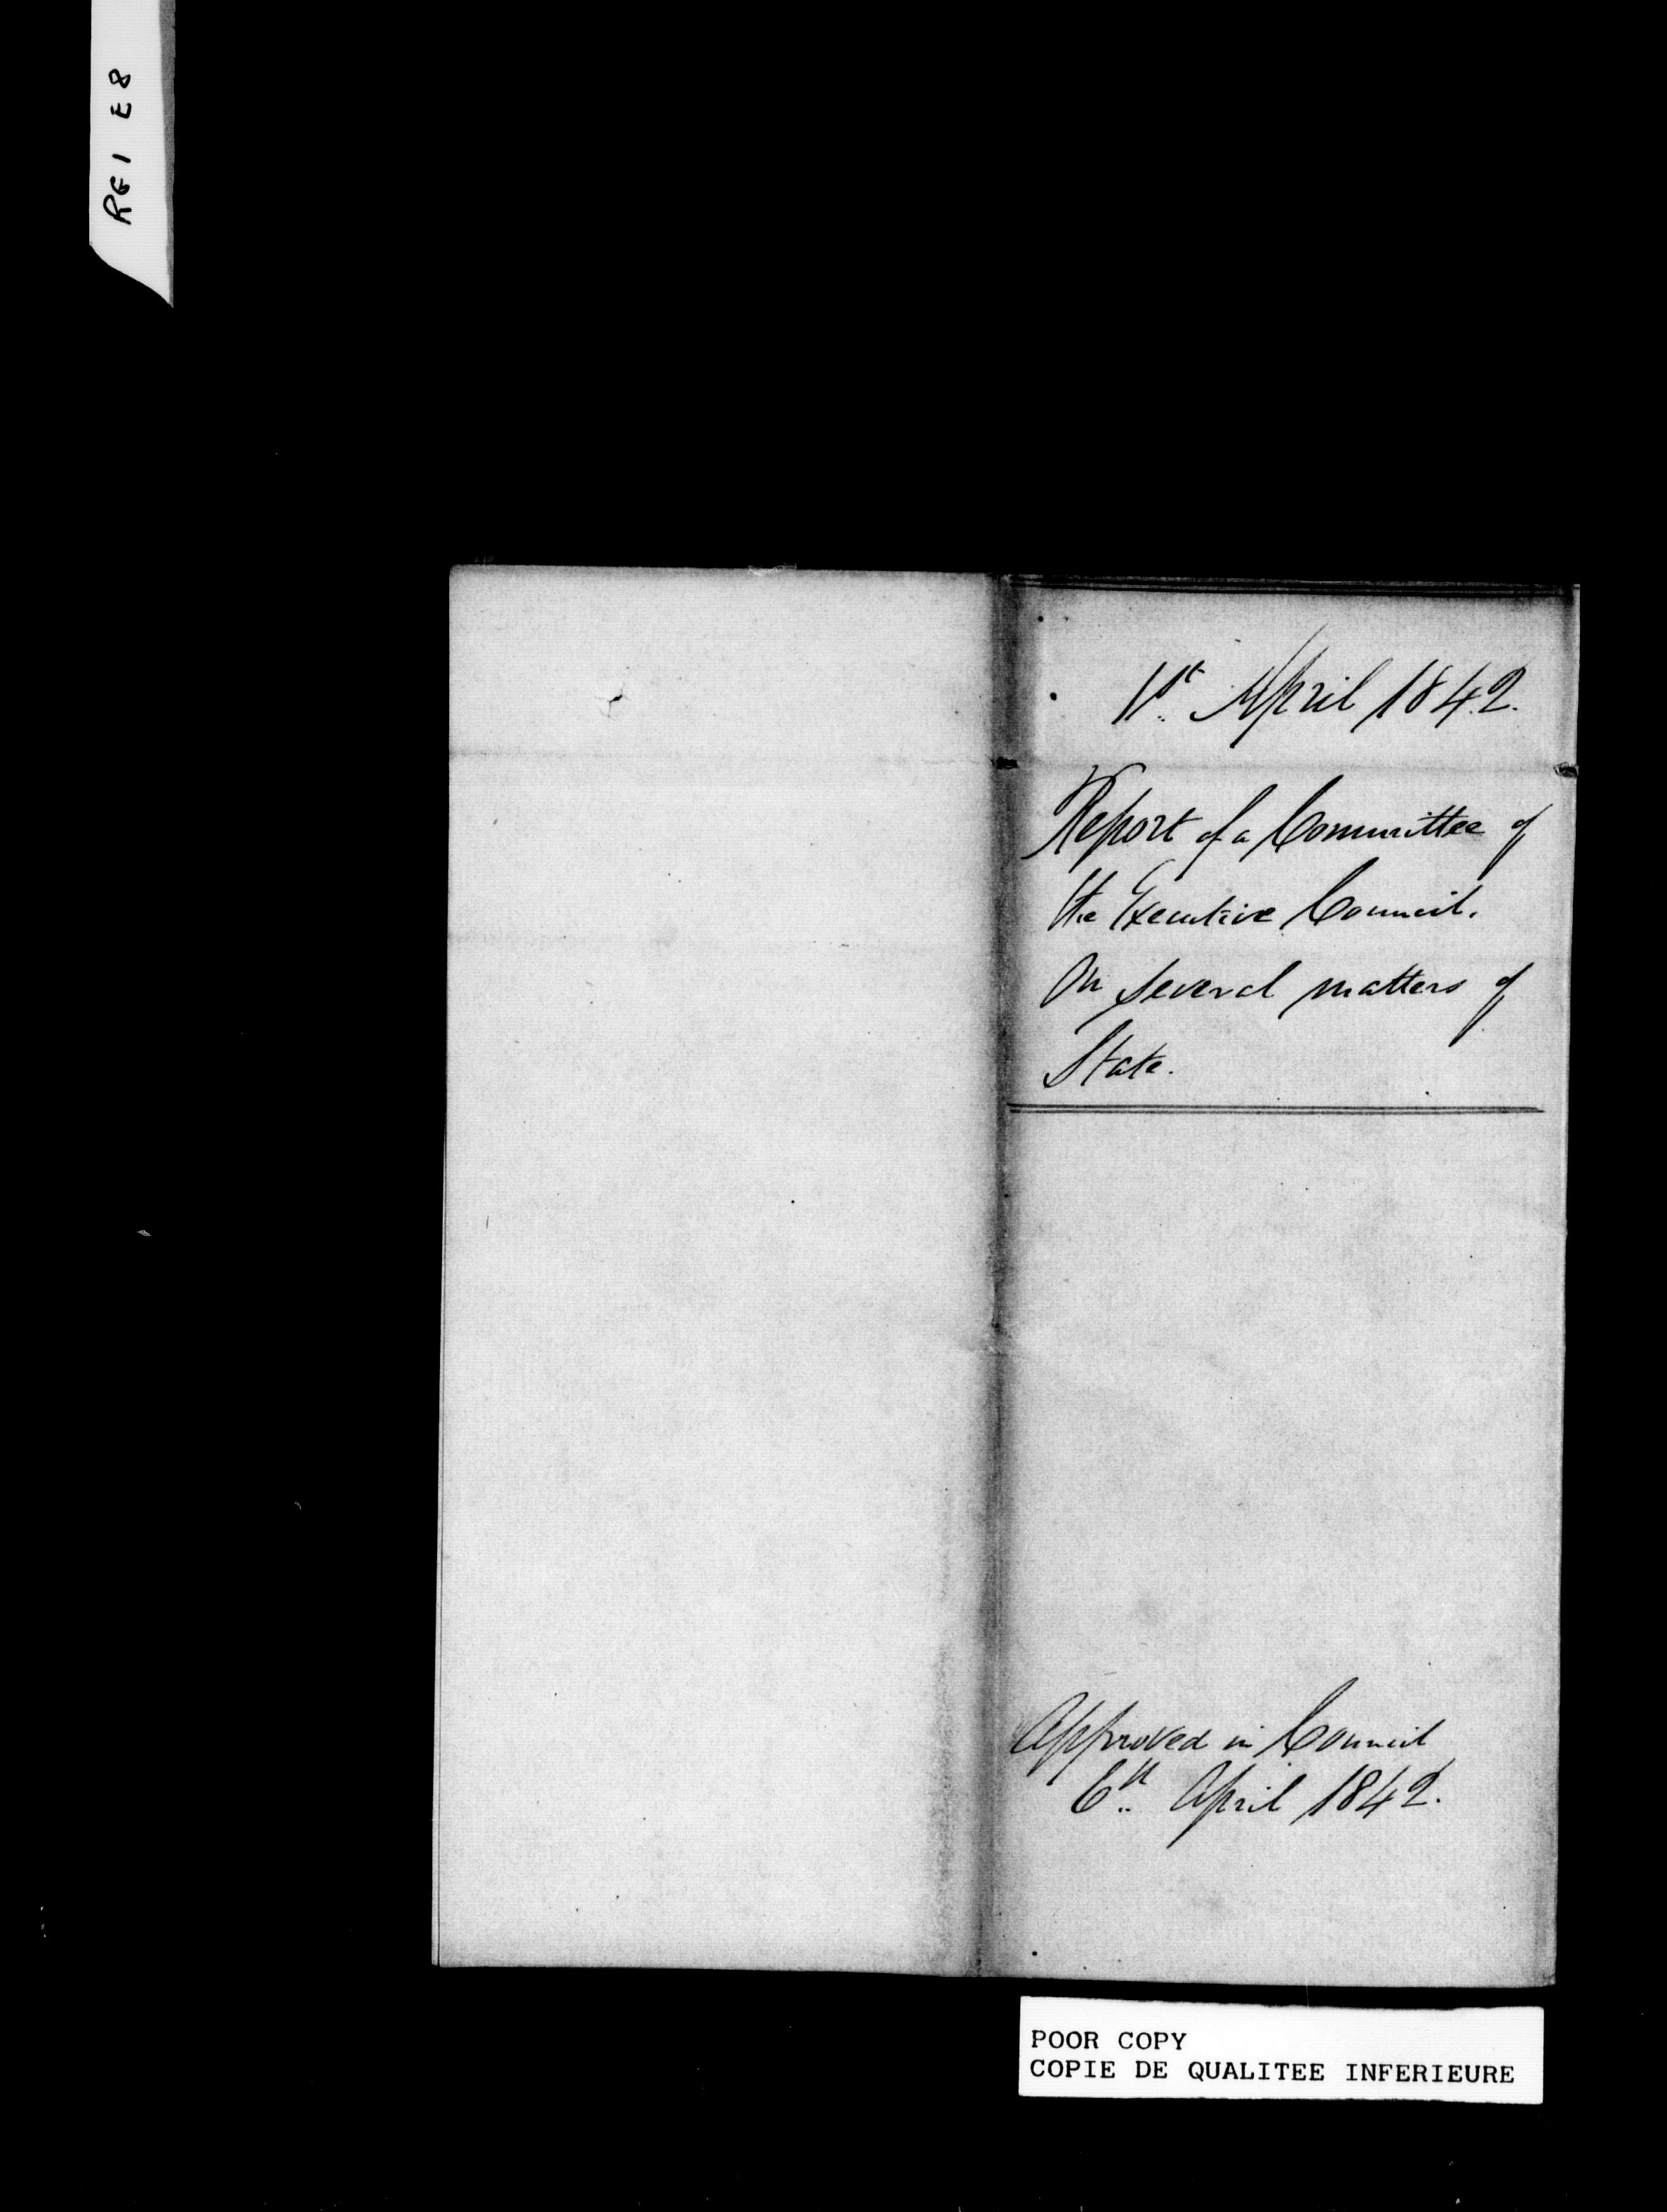 RG1 E8
1st April 1842.
Report of a Committee of
the Executive Council.
On several matters of
State.
Approved in Council
6th April 1842.
POOR COPY
COPIE DE QUALITEE INFERIEURE